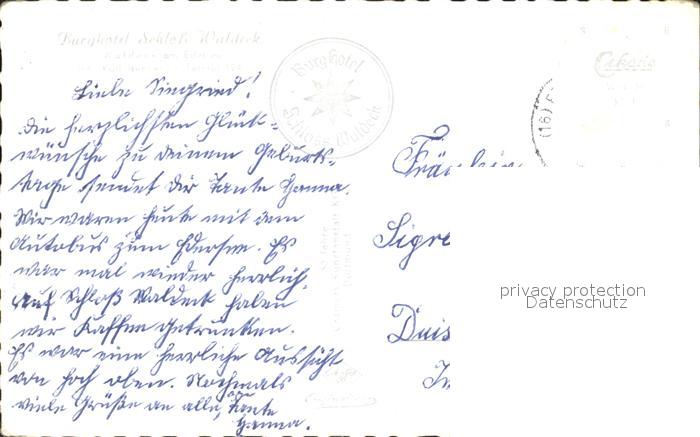 Burghotel Schloß Waldeck
Waldeck am Edersee
Liebe Siegried!
Die herzlichsten Glück-
wünsche zu deinem Geburts-
tage sendet Dir Tante Hanna.
Wir waren heute mit dem
Autobus zum Edersee. Es
war mal wieder herrlich.
Auf Schloß Waldeck haben
wir Kaffee getrunken.
Es war eine herrliche Aussicht
von hoch oben. Nochmals
viele Grüße an alle, Tante
Hanna.
Burghotel
Schloss Waldeck
Cekade
(16)
Fräulein
Sigre
Duis
privacy protection
Datenschutz